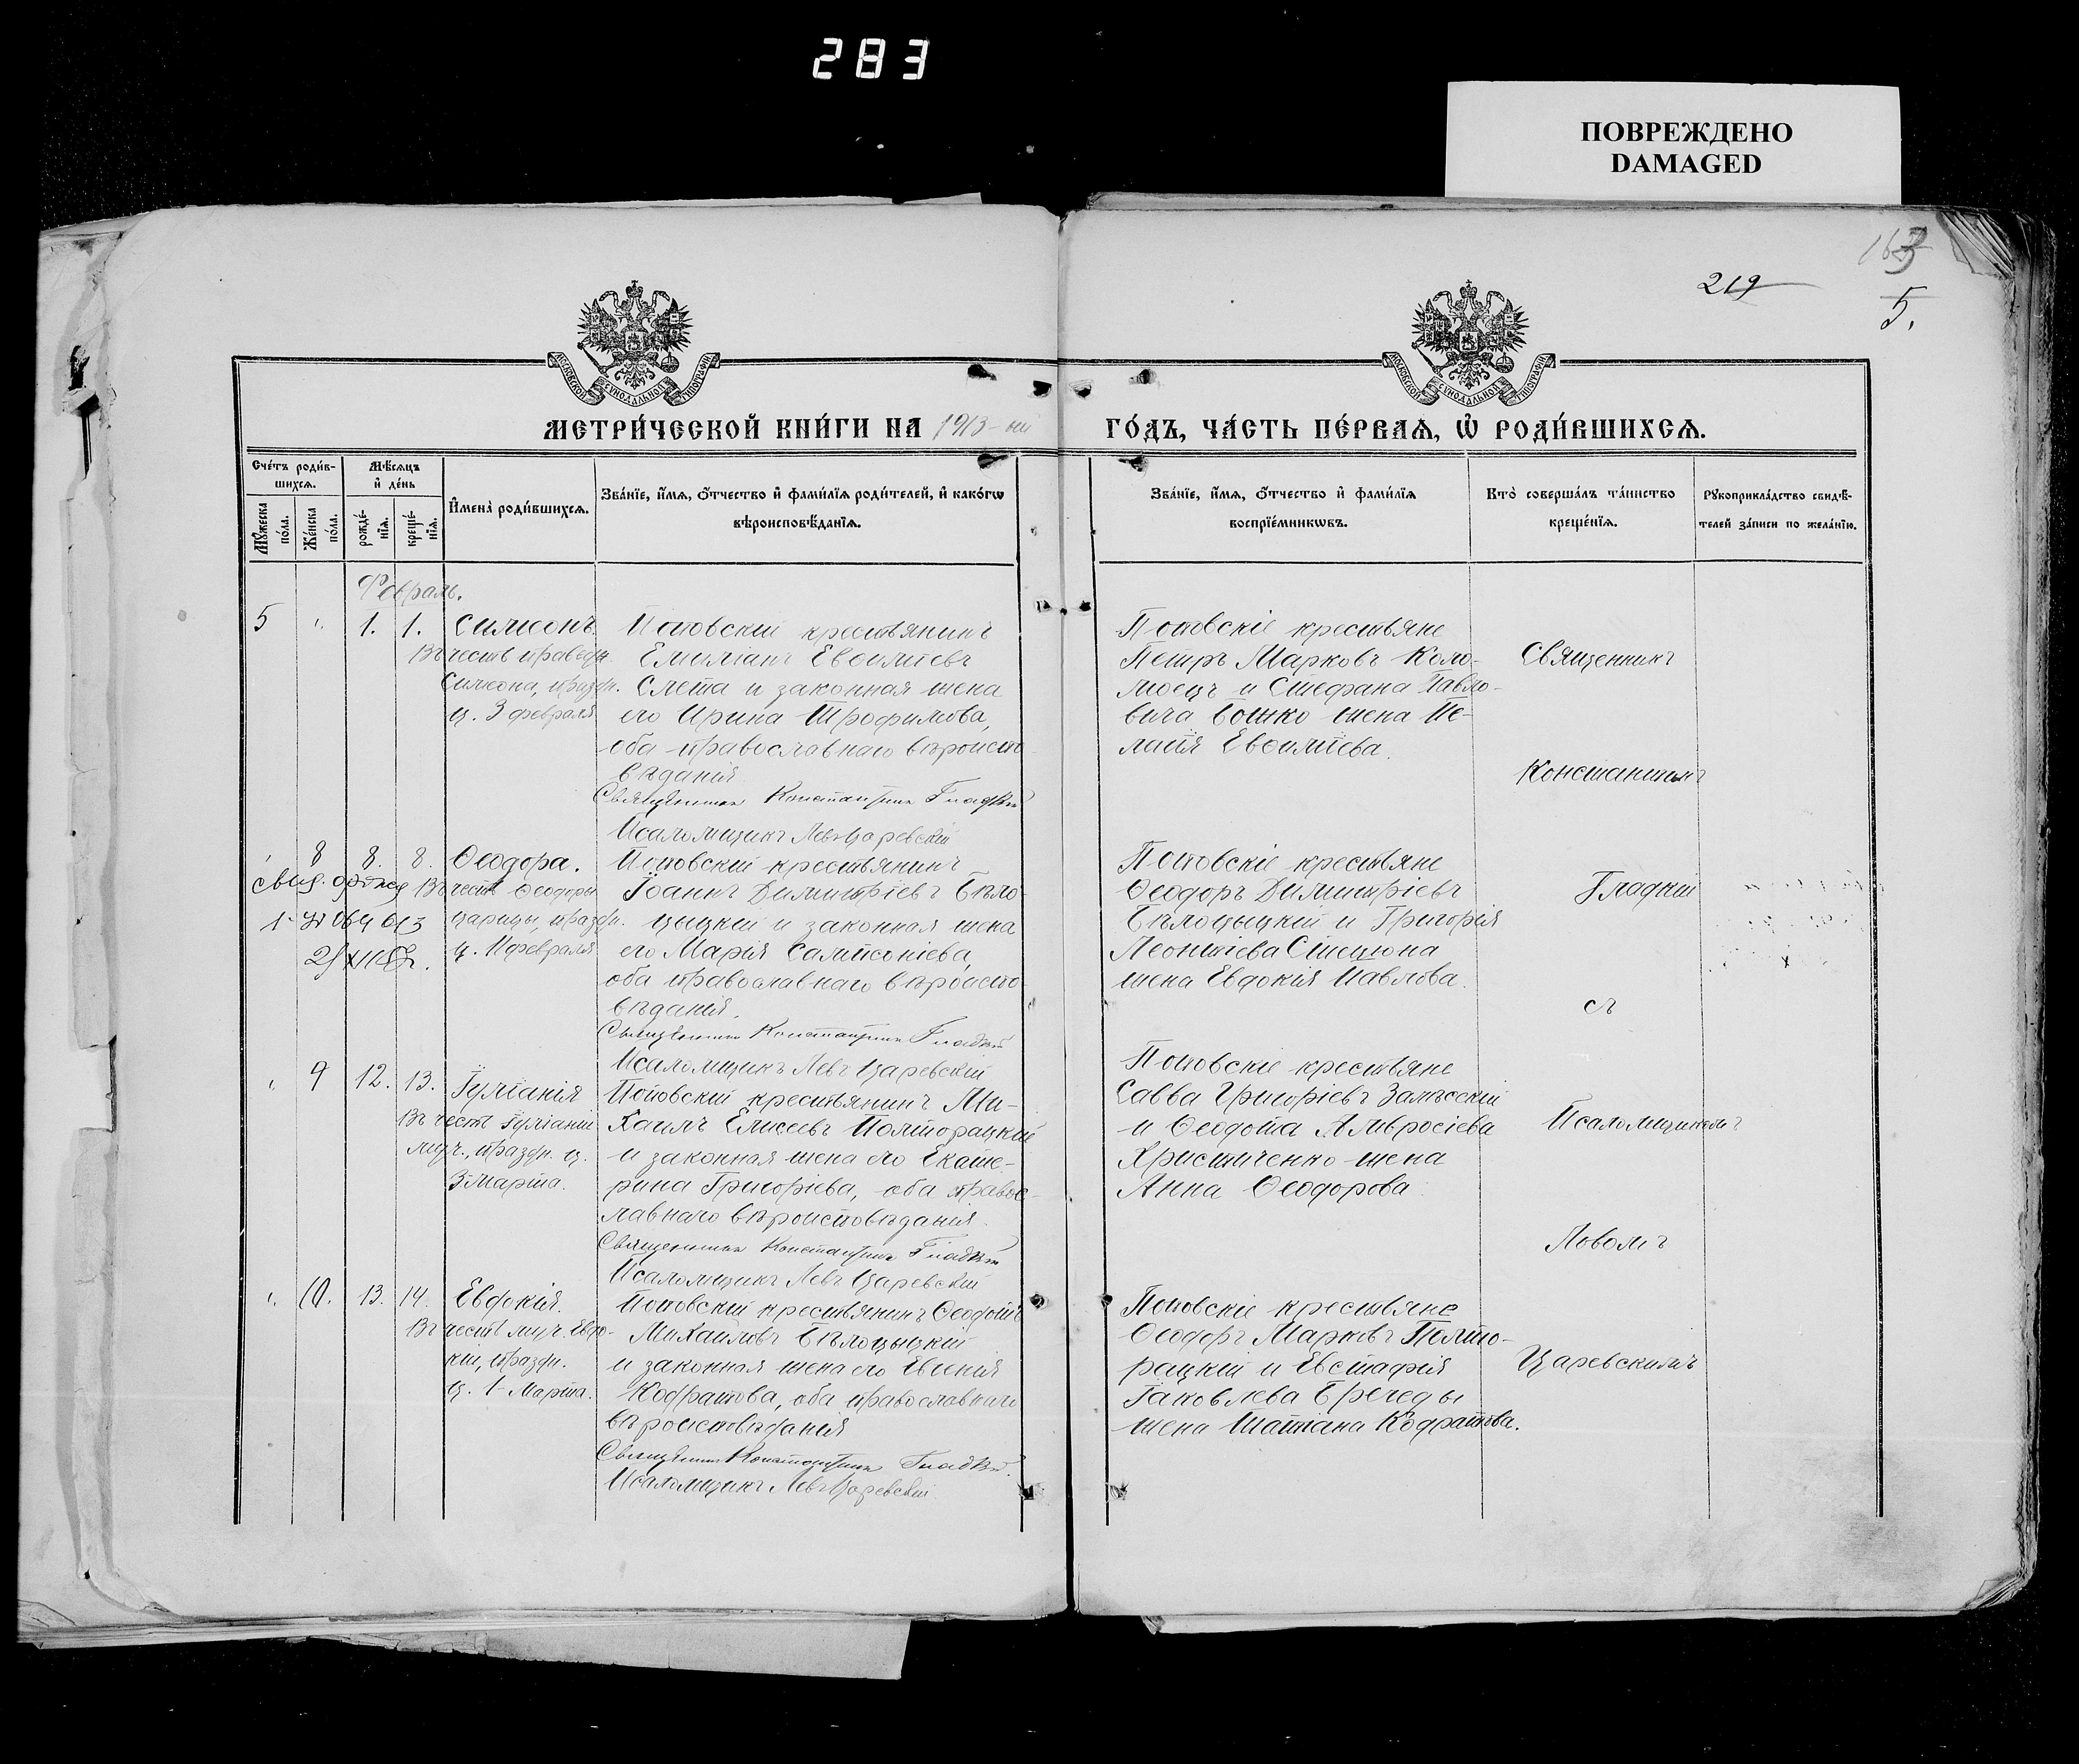 283
ПОВРЕЖДЕНО
DAMAGED
219
5.
МОСКОВСКОЙ СѴНОДАЛЬНОЙ ТИПОГРАФІИ
МОСКОВСКОЙ СѴНОДАЛЬНОЙ ТИПОГРАФІИ
МЕТРИ́ЧЕСКОЙ КНИ́ГИ НА 1913-ый
ГО́ДЪ, ЧА́СТЬ ПЕ́РВАЯ, Ѡ҆ РОДИ́ВШИХСЯ.
Сче́тъ роди́в-
шихся.
Мѣ́сяцъ
и҆ де́нь
Мꙋ́жеска
по́ла.
Же́нска
по́ла.
рожде́-
нїя.
креще́-
нїя.
И҆мена̀ роди́вшихся.
Зва́нїе, и҆́мя, ѻ҆́тчество и҆ фами́лїя роди́телей, и҆ како́гѡ
вѣроисповѣ́данїя.
Зва́нїе, и҆́мя, ѻ҆́тчество и҆ фами́лїя
воспрїе́мникѡвъ.
Кто̀ соверша́лъ та́инство
креще́нїя.
Рꙋкоприкла́дство свидѣ́-
телей за́писи по жела́нїю.
Февраль.
5 " 1. 1. Симеонъ.
Въ честь праведн.
Симеона, праздн.
ц. 3 февраля
Поповскій крестьянинъ
Емиліанъ Евѳиміевъ
Слета и законная жена
его Ирина Трофимова,
оба православнаго вѣроиспо-
вѣданія
Священникъ Константинъ Гладкій
Псаломщикъ Левъ Царевскій
Поповскіе крестьяне
Петръ Марковъ Коло-
моецъ и Стефана Павло-
вича Божко жена Пе-
лагія Евѳиміева.
Священникъ
Константинъ
" 8 8. 8. Ѳеодора.
Въ честь Ѳеодоры
царицы, праздн.
ц. 11 февраля
Поповскій крестьянинъ
Іоаннъ Димитріевъ Бѣло-
цыцкій и законная жена
его Марія Сампсоніева,
оба православнаго вѣроиспо-
вѣданія.
Священникъ Константинъ Гладкій
Псаломщикъ Левъ Царевскій
Поповскіе крестьяне
Ѳеодоръ Димитріевъ
Бѣлоцыцкій и Григорія
Леонтіева Стецюна
жена Евдокія Павлова.
Гладкій
съ
" 9 12. 13. Іуліанія
Въ честь Іуліаніи
муч., праздн. ц.
3 Марта.
Поповскій крестьянинъ Ми-
хаилъ Елисеевъ Полторацкій
и законная жена его Екате-
рина Григоріева, оба правос-
лавнаго вѣроисповѣданія.
Священникъ Константинъ Гладкій
Псаломщикъ Левъ Царевскій
Поповскіе крестьяне
Савва Григоріевъ Залѣсскій
и Ѳеодота Амвросіева
Христиченко жена
Анна Ѳеодорова
Псаломщикомъ
Львомъ
" 10. 13. 14. Евдокія.
Въ честь муч. Евдо-
кіи, праздн.
ц. 1 Марта.
Поповскій крестьянинъ Ѳеодотъ
Михаиловъ Бѣлоцыцкій
и законная жена его Евгенія
Кодратова, оба православнаго
вѣроисповѣданія
Священникъ Константинъ Гладкій.
Псаломщикъ Левъ Царевскій
Поповскіе крестьяне
Ѳеодоръ Марковъ Полто-
рацкій и Евстафія
Іаковлева Бречеды
жена Татіана Кодратова.
Царевскимъ